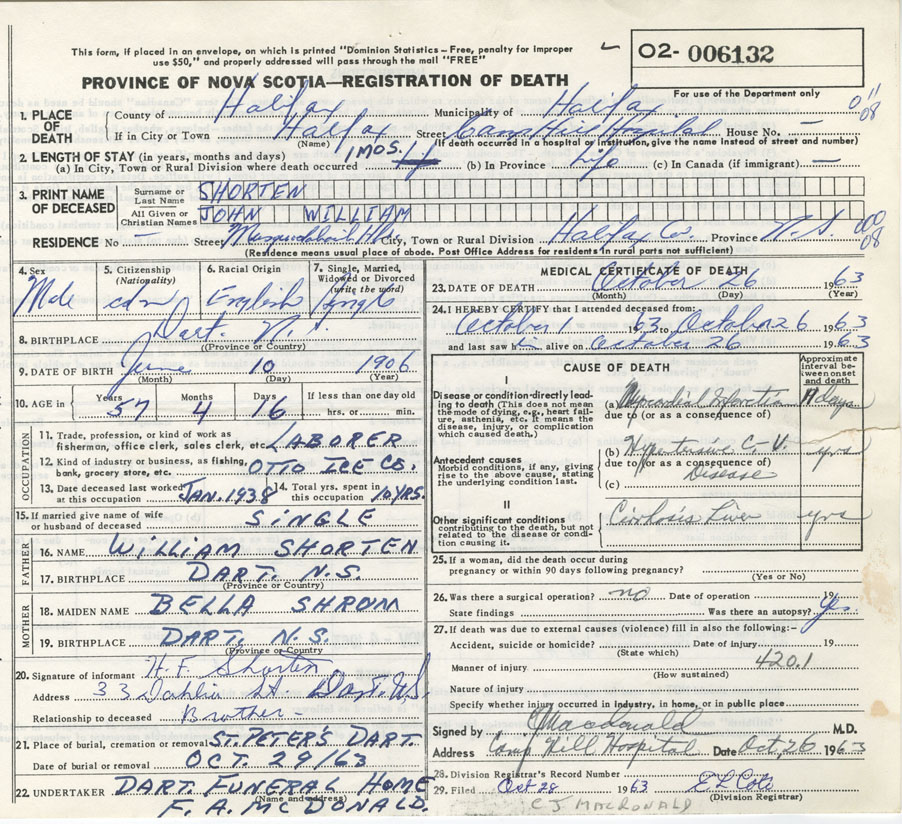 This form, if placed in an envelope, on which is printed "Dominion Statistics – Free, penalty for improper
use $50," and properly addressed will pass through the mail "FREE"
O2- 006132
PROVINCE OF NOVA SCOTIA—REGISTRATION OF DEATH
For use of the Department only
1. PLACE OF DEATH
County of Halifax Municipality of Halifax
If in City or Town Halifax Street Camp Hill Hospital House No. —
(Name) (If death occurred in a hospital or institution, give the name instead of street and number)
08
2. LENGTH OF STAY (in years, months and days)
(a) In City, Town or Rural Division where death occurred 1 MOS. (b) In Province Life (c) In Canada (if immigrant) —
3. PRINT NAME OF DECEASED
Surname or Last Name SHORTEN
All Given or Christian Names JOHN WILLIAM
RESIDENCE No — Street City, Town or Rural Division Halifax Co. Province N.S.
08
(Residence means usual place of abode. Post Office Address for residents in rural parts not sufficient)
4. Sex Male
5. Citizenship (Nationality) cdn
6. Racial Origin English
7. Single, Married, Widowed or Divorced (write the word) Single
8. BIRTHPLACE Dart. N.S.
(Province or Country)
9. DATE OF BIRTH June 10 1906
(Month) (Day) (Year)
10. AGE in Years 57 Months 4 Days 16 If less than one day old hrs. or min.
OCCUPATION
11. Trade, profession, or kind of work as fisherman, office clerk, sales clerk, etc. LABORER
12. Kind of industry or business, as fishing, bank, grocery store, etc. OTTO ICE CO.
13. Date deceased last worked at this occupation JAN. 1938 14. Total yrs. spent in this occupation 10 YRS.
15. If married give name of wife or husband of deceased SINGLE
FATHER
16. NAME WILLIAM SHORTEN
17. BIRTHPLACE DART. N.S.
(Province or Country)
MOTHER
18. MAIDEN NAME BELLA SHROM
19. BIRTHPLACE DART. N.S.
(Province or Country
20. Signature of informant H. F. Shorten
Address 33 Dahlia St Dart. N.S.
Relationship to deceased Brother –
21. Place of burial, cremation or removal ST. PETER'S DART.
Date of burial or removal OCT. 29/63
22. UNDERTAKER DART FUNERAL HOME
(Name and address)
F. A. McDONALD.
MEDICAL CERTIFICATE OF DEATH
23. DATE OF DEATH October 26 1963
(Month) (Day) (Year)
24. I HEREBY CERTIFY that I attended deceased from:
October 1 1963 to October 26 1963
and last saw him alive on October 26 1963
CAUSE OF DEATH
Approximate interval between onset and death
I
Disease or condition directly leading to death (This does not mean the mode of dying, e.g., heart failure, asthenia, etc. It means the disease, injury, or complication which caused death.)
(a) Myocardial Infarction days
due to (or as a consequence of)
Antecedent causes
Morbid conditions, if any, giving rise to the above cause, stating the underlying condition last.
(b) Hypertensive C-V. yrs
due to (or as a consequence of)
Disease
(c)
II
Other significant conditions
contributing to the death, but not related to the disease or condition causing it.
Cirrhosis Liver yrs
25. If a woman, did the death occur during pregnancy or within 90 days following pregnancy?
(Yes or No)
26. Was there a surgical operation? no Date of operation 19
State findings Was there an autopsy? Yes
27. If death was due to external causes (violence) fill in also the following:–
Accident, suicide or homicide? Date of injury 19
(State which)
Manner of injury 420.1
(How sustained)
Nature of injury
Specify whether injury occurred in Industry, in home, or in public place
Signed by CJ Macdonald M.D.
Address Camp Hill Hospital Date Oct. 26 1963
28. Division Registrar's Record Number
29. Filed Oct 28 1963
(Division Registrar)
CJ MACDONALD